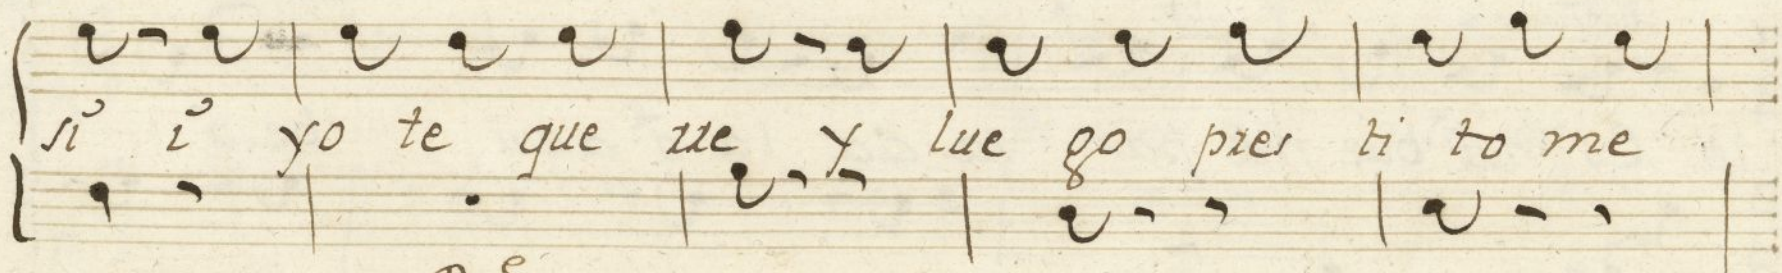 si i yo te que rre y lue go pres ti to me